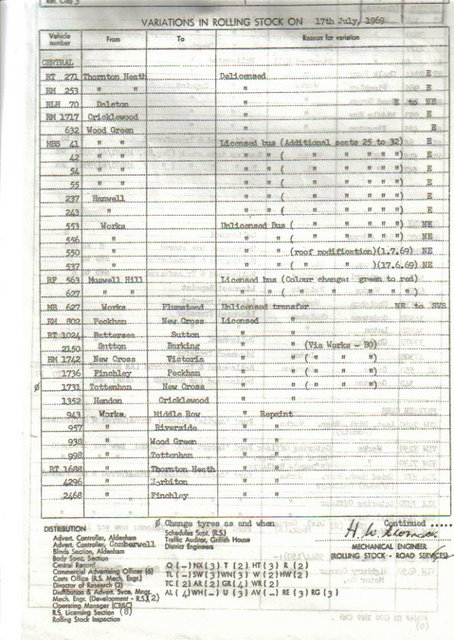 VARIATIONS IN ROLLING STOCK ON 17th July, 1969
Vehicle number From To Reason for variation
CENTRAL
RT 271 Thornton Heath Delicensed E
RM 253 " " " E
BLH 70 Dalston " E to NE
RM 1717 Cricklewood "
632 Wood Green "
MBS 41 " " Licensed bus (Additional seats 25 to 32) E
42 " " " " ( " " " " ) E
54 " " " " ( " " " " ) E
55 " " " " ( " " " " ) E
237 Hanwell " " ( " " " " ) E
243 " " " ( " " " " ) E
553 Works Unlicensed Bus ( " " " " ) NE
556 " " " ( " " " " ) NE
550 " " " (roof modification)(1.7.69) NE
537 " " " ( " " )(17.6.69) NE
RF 563 Muswell Hill Licensed bus (Colour change: green to red)
627 " " " " ( " " " " " )
MB 627 Works Plumstead Unlicensed transfer NE to SVS
RM 802 Peckham New Cross Licensed "
RT 1024 Battersea Sutton " "
2150 Sutton Barking " " (Via Works - BO)
RM 1742 New Cross Victoria " " ( " " " )
1736 Finchley Peckham " " ( " " " )
Ø 1731 Tottenham New Cross " " ( " " " )
1352 Hendon Cricklewood " "
943 Works Middle Row " " Repaint
957 " Riverside " " "
938 " Wood Green " " "
998 " Tottenham " " "
RT 1688 " Thornton Heath " " "
4296 " Surbiton " " "
2468 " Finchley " " "
Ø Change tyres as and when Continued
DISTRIBUTION
Advert. Controller, Aldenham
Advert. Controller, Camberwell
Blinds Section, Aldenham
Body Senr. Section
Central Record
Commercial Advertising Officer (6)
Costs Office (R.S. Mech. Engr.)
Director of Research (2)
Distribution & Advert. Svce. Mngr.
Mech. Engr. (Development - R.S.) (2)
Operating Manager (CB&C)
R.S. Licensing Section (8)
Rolling Stock Inspection
Schedules Supt. (R.S.)
Traffic Auditor, Griffith House
District Engineers
Q (-) NX (3) T (2) HT (3) R (2)
TL (-) SW (3) WN (3) W (2) HW (2)
TC (2) AR (2) GR (4) WR (2)
AL (4) WH (-) U (3) AV (-) RE (3) RG (3)
MECHANICAL ENGINEER
(ROLLING STOCK - ROAD SERVICES)